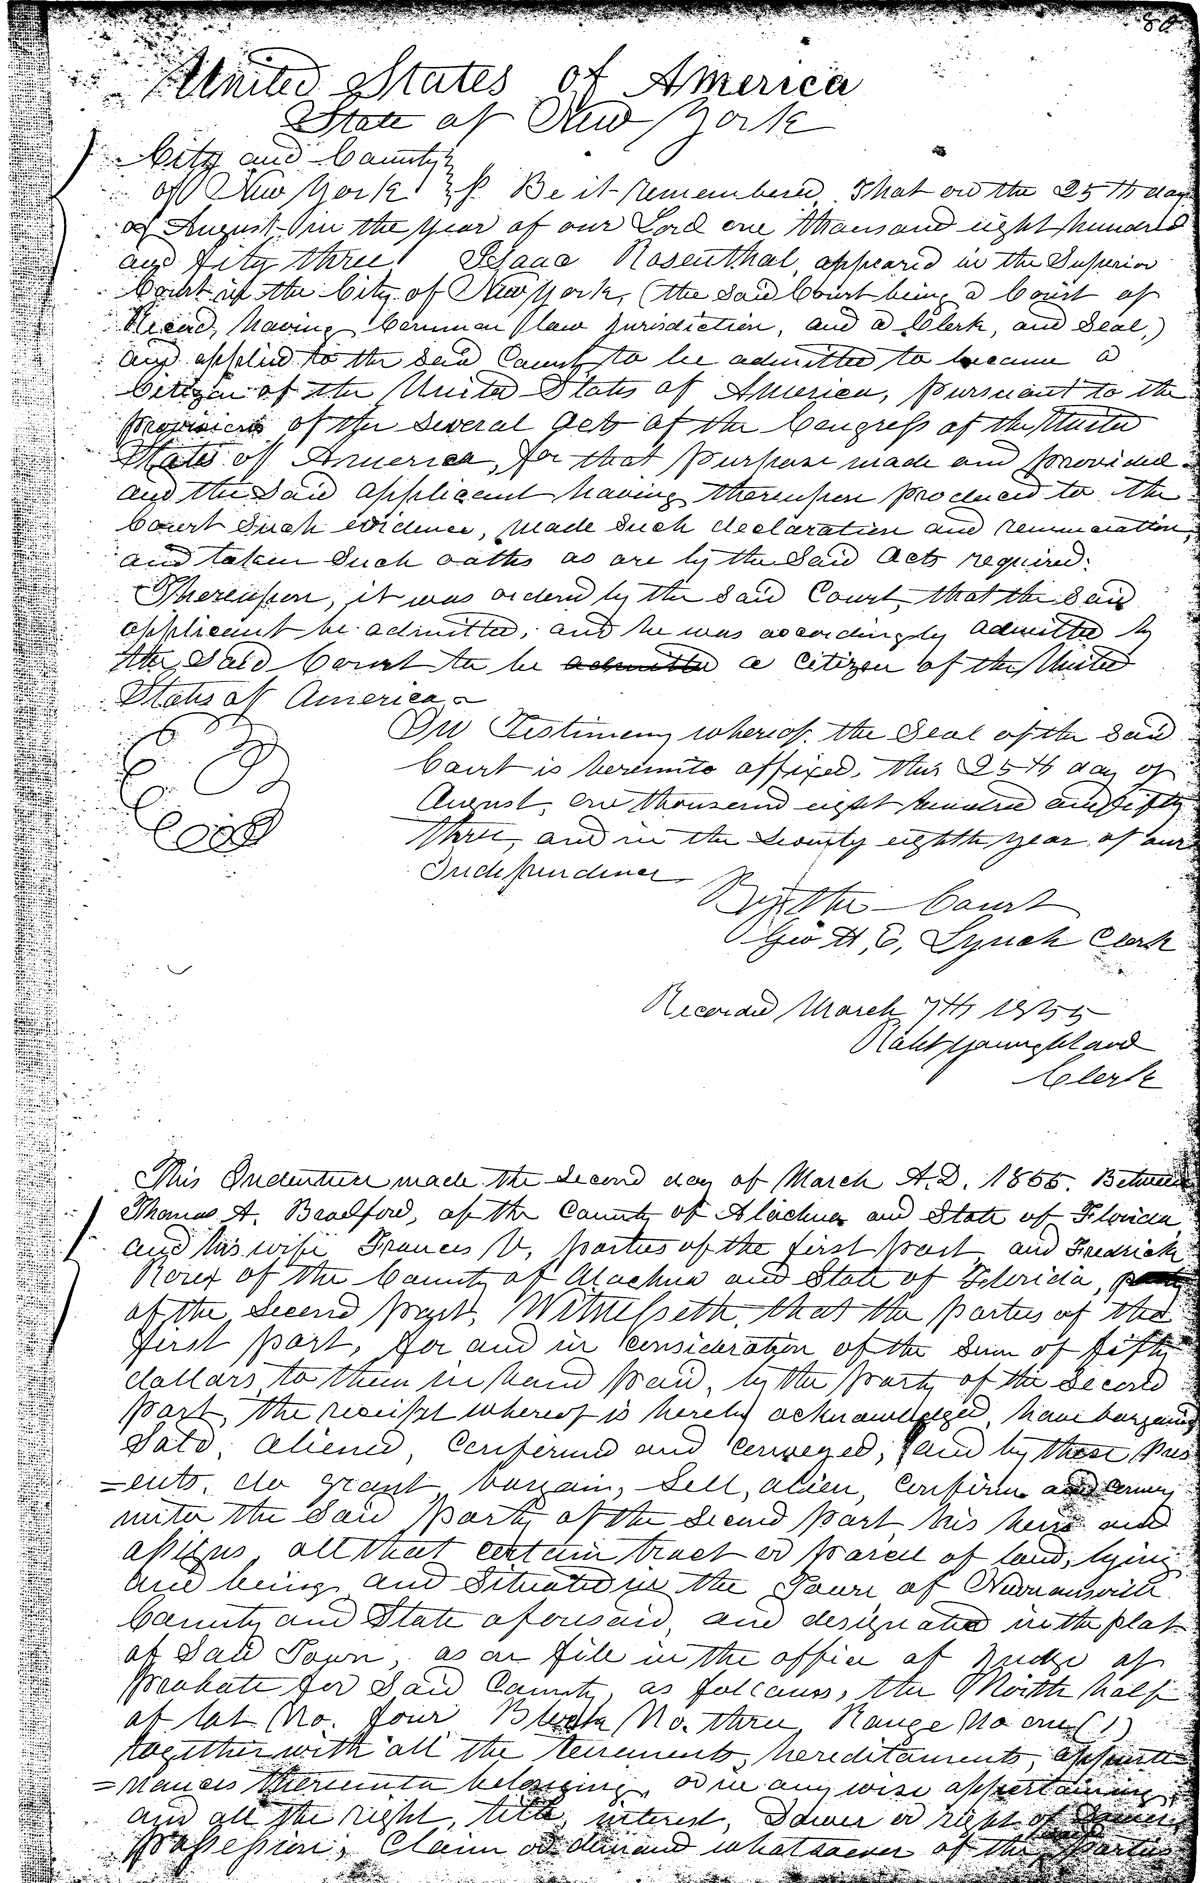 United States of America
State of New York
City and County
of New York } Be it remembered, That on the 25th day
of August in the year of our Lord one thousand eight hundred
and fifty three Isaac Rosenthal, appeared in the Superior
Court in the City of New York, (the said Court being a Court of
Record, having Common law jurisdiction, and a Clerk, and Seal,)
and applied to the said Court, to be admitted to become a
Citizen of the United States of America, pursuant to the
provisions of the several Acts of the Congress of the United
States of America, for that purpose made and provided
and the said applicant having thereupon produced to the
Court such evidence, made such declaration and renunciation,
and taken such oaths as are by the said Acts required:
Thereupon, it was ordered by the said Court, that the said
applicant be admitted, and he was accordingly admitted by
the said Court to be admitted a citizen of the United
States of America
In Testimony whereof, the Seal of the said
Court is hereunto affixed, this 25th day of
August, one thousand eight hundred and fifty
three, and in the Seventy eighth year of our
Independence
By the Court
Geo H, E, Lynch Clerk
Recorded March 7th 1855
Clerk
This Indenture made the second day of March A.D. 1855. Between
Thomas A. Bradford, of the County of Alachua and State of Florida,
and his wife Frances V, parties of the first part, and Fredrick
of the County of Alachua and State of Florida, party
of the second part, Witnesseth, that the parties of the
first part, for and in consideration of the sum of fifty
dollars, to them in hand paid, by the party of the second
part, the receipt whereof is hereby acknowledged, have bargained
Sold, aliened, confirmed and conveyed, and by these pres
=ents, do grant, bargain, sell, alien, confirm and convey
unto the said party of the second part, his heirs and
assigns, all that certain tract or parcel of land, lying
and being, and situated in the Town of Newnansville
County and State aforesaid, and designated in the plat
of said Town, as on file in the office of Judge of
Probate for said County, as follows, the North half
of lot No. four, Block No. three, Range No one (1)
together with all the tenements, hereditaments, appurte
=nances thereunto belonging, or in any wise appertaining,
and all the right, title, interest, Dower or right of Dower,
possession, claim or demand whatsoever of the said parties